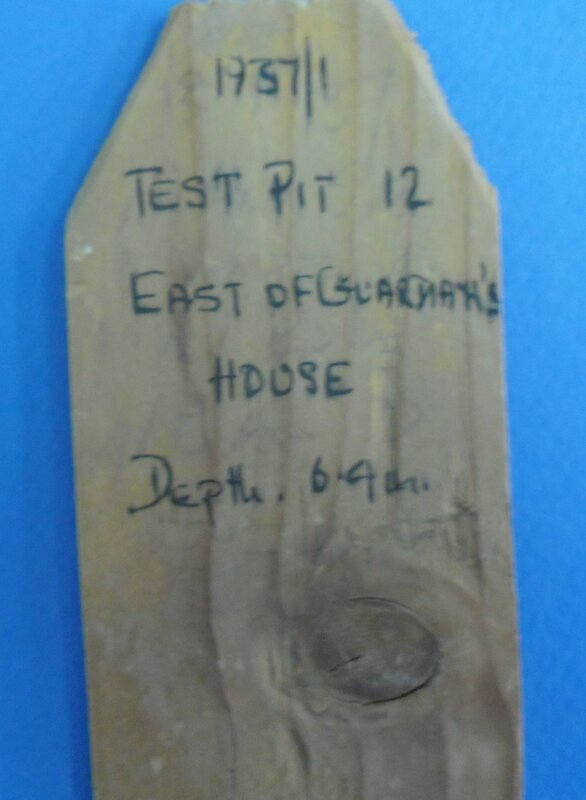 1937/1
TEST PIT 12
EAST OF GUARDMAN'S
HOUSE
Depth. 6.4m.